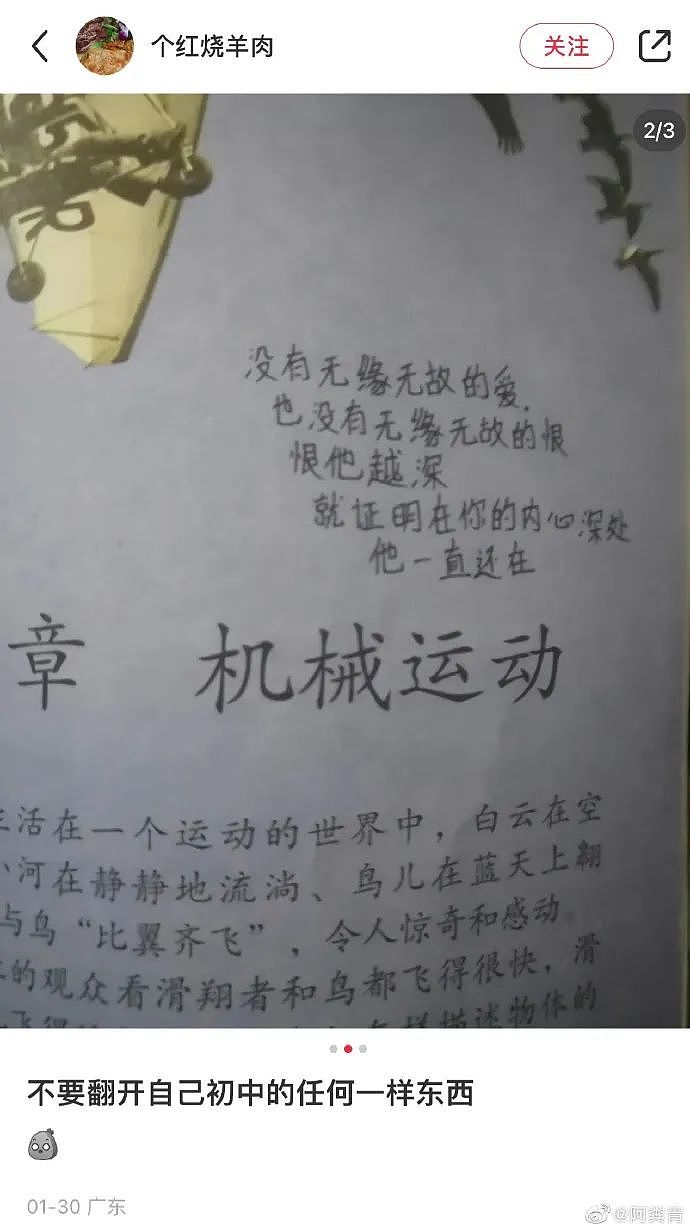 个红烧羊肉
关注
2/3
没有无缘无故的爱,
也没有无缘无故的恨
恨他越深
就证明在你的内心深处
他一直还在
章 机械运动
生活在一个运动的世界中，白云在空
河在静静地流淌、鸟儿在蓝天上翱
与鸟“比翼齐飞”，令人惊奇和感动。
的观众看滑翔者和鸟都飞得很快，滑
描述物体的
不要翻开自己初中的任何一样东西
01-30 广东
@阿粪青